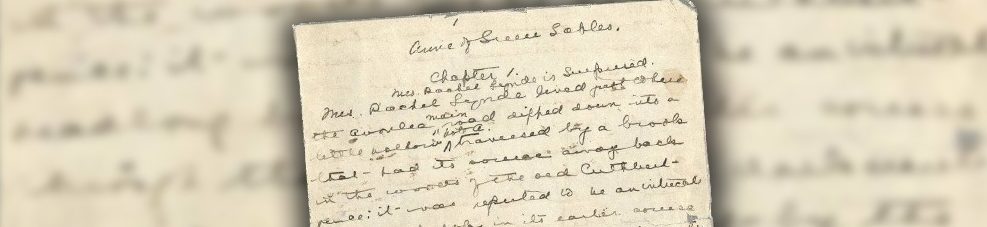 Anne of Green Gables.
Chapter 1.
Mrs. Rachel Lynde is Surprised.
Mrs. Rachel Lynde lived just where
the Avonlea main road dipped down into a
little hollow traversed by a brook
that had its source away back
in the woods of the old Cuthbert
place: it was reputed to be an intricate
in its earlier course